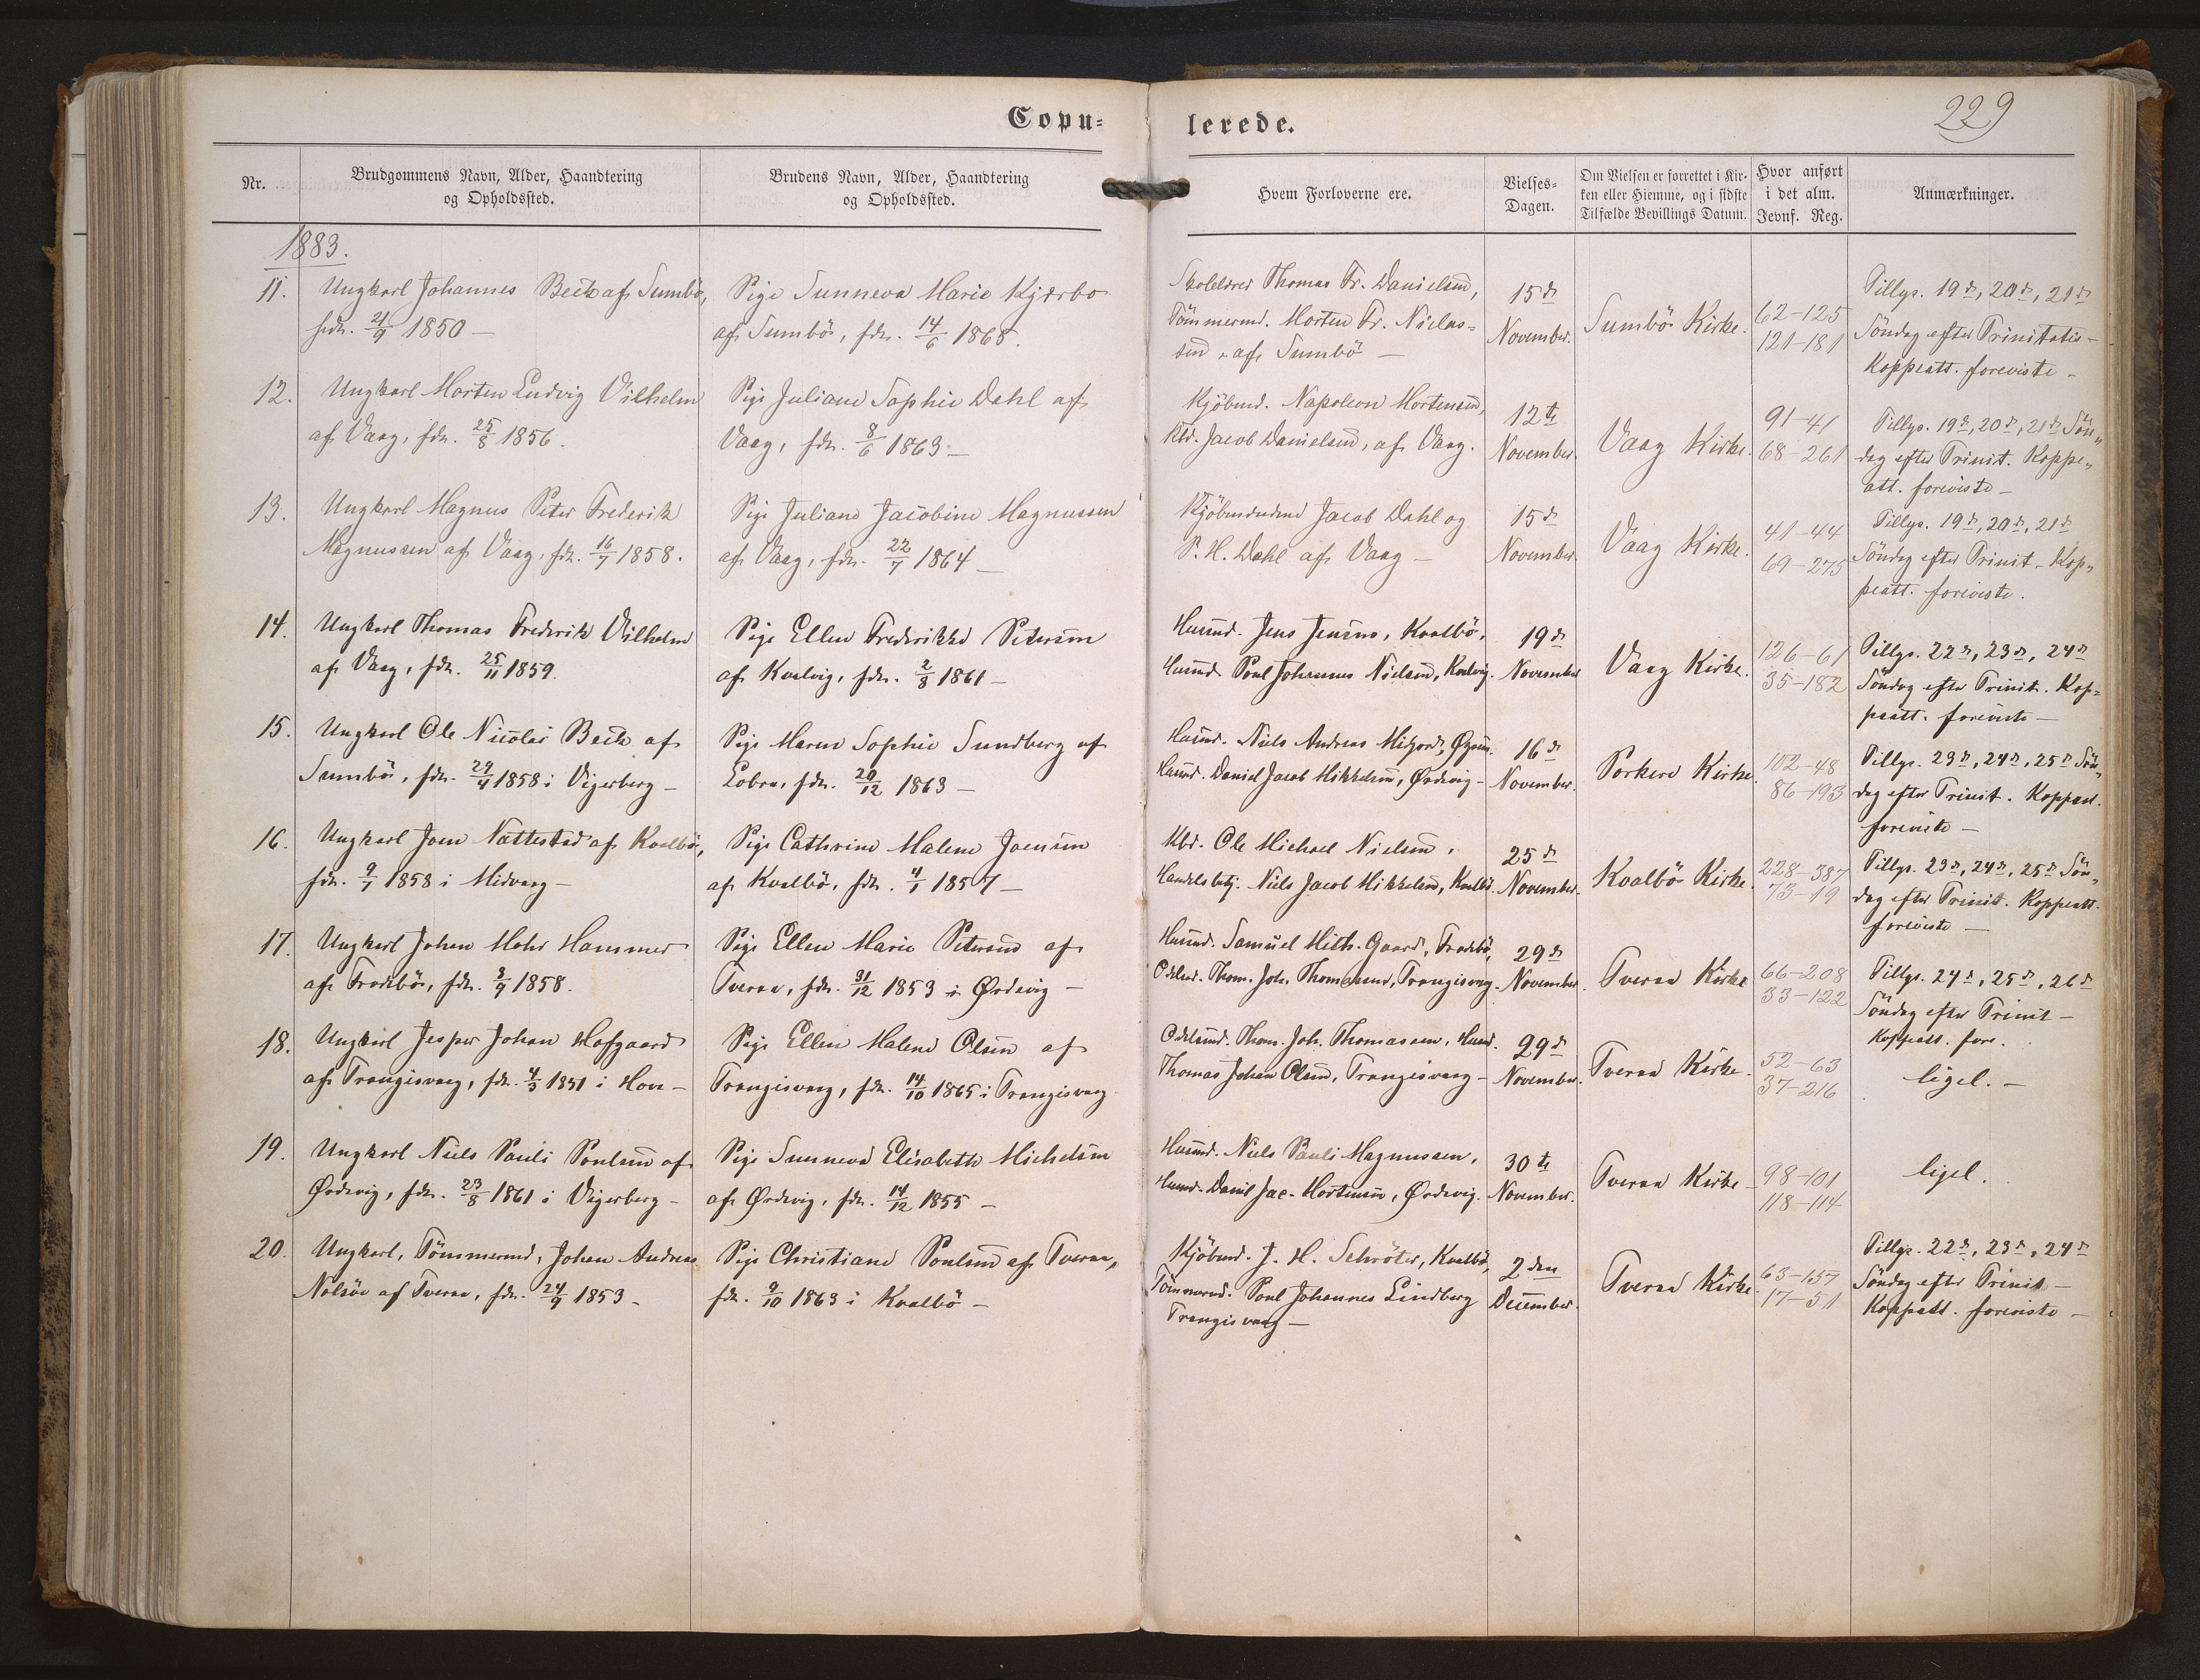 Copu=
lerede.
229
Nr.
Brudgommens Navn, Alder, Haandtering
og Opholdssted.
Brudens Navn, Alder, Haandtering
og Opholdssted.
Hvem Forloverne ere.
Vielses-
Dagen.
Om Vielsen er forrettet i Kir-
ken eller Hiemme, og i sidste
Tilfælde Bevillings Datum.
Hvor anført
i det alm.
Jevnf. Reg.
Anmærkninger.
1883.
11.
Ungkarl Johannes Beck af Sumbö,
fdt. 21/9 1850 —
Pige Sunneva Marie Kjærbo
af Sumbö, fdt. 14/6 1865.
Skolelærer Thomas Fr. Danielsen,
Tömmermd. Morten Fr. Niclas=
sen, af Sumbö —
15de
November.
Sumbö Kirke.
62–125
121–181
Tillys. 19de, 20de, 21de
Söndag efter Trinitatis —
Koppeatt. foreviste —
12.
Ungkarl Morten Ludvig Vilhelm
af Vaag, fdt. 25/8 1856.
Pige Juliane Sophie Dahl af
Vaag, fdt. 8/6 1863 —
Kjöbmd. Napoleon Mortensen,
Klr. Jacob Danielsen, af Vaag.
12te
November.
Vaag Kirke.
91–41
68–261
Tillys. 19de, 20de, 21de Sön„
dag efter Trinit. Koppe„
att. foreviste —
13.
Ungkarl Magnus Peter Frederik
Magnussen af Vaag, fdt. 16/7 1858.
Pige Juliane Jacobine Magnussen
af Vaag, fdt. 22/7 1864 —
Kjöbmændene Jacob Dahl og
P. H. Dahl af Vaag —
15de
November.
Vaag Kirke.
41–44
69–275
Tillys. 19de, 20de, 21de
Söndag efter Trinit — Kop„
peatt. foreviste.
14.
Ungkarl Thomas Frederik Vilhelm
af Vaag, fdt. 25/11 1859.
Pige Ellen Frederikke Petersen
af Kvalvig, fdt. 2/8 1861 —
Huusmd. Jens Jensen, Kvalbö,
Huusmd. Poul Johannes Nielsen, Kvalvig.
19de
November
Vaag Kirke.
126–61
35–182
Tillys. 22de, 23de, 24de
Söndag efter Trinit. Kop=
peatt. foreviste —
15.
Ungkarl Ole Nicolai Beck af
Sumbö, fdt. 29/4 1858 i Vigerberg —
Pige Maren Sophie Sundberg af
Lobra, fdt. 20/12 1863 —
Huusmd. Niels Andreas
Huusmd. Daniel Jacob Mikkelsen, Ördevig —
16de
November.
Porkere Kirke.
102–48
86–193
Tillys. 23de, 24de, 25de Sön„
dag efter Trinit. Koppeatt.
foreviste —
16.
Ungkarl Joen Nattestad af Kvalbö,
fdt. 9/7 1858 i Midvaag —
Pige Cathrine Malene Joensen
af Kvalbö, fdt. 4/1 1857 —
Kbd. Ole Michael Nielsen,
Handelsbetj. Niels Jacob Mikkelsen, Kvalbö.
25de
November.
Kvalbö Kirke.
228–387
73–19
Tillys. 23de, 24de, 25de Sön„
dag efter Trinit. Koppeatt.
foreviste —
17.
Ungkarl Johan Mohr Hammer
af Frodebö, fdt. 3/9 1858.
Pige Ellen Marie Petersen af
Tveraa, fdt. 31/12 1853 i Ördevig —
Huusmd. Samuel Mich. Gaard, Frodebö,
Odelsmd. Thom. Joh. Thomassen, Trangisvaag.
29de
November.
Tveraa Kirke
66–208
33–122
Tillys. 24de, 25de, 26de
Söndag efter Trinit —
Koppeatt. fore.
18.
Ungkarl Jesper Johan Hofgaard
af Trangisvaag, fdt. 4/3 1851 i Hove —
Pige Ellen Malene Olsen af
Trangisvaag, fdt. 14/10 1865 i Trangisvaag
Odelsmd. Thom. Joh. Thomassen, Huusmd.
Thomas Johan Olsen, Trangisvaag —
29de
November.
Tveraa Kirke.
52–63
37–216
ligel. —
19.
Ungkarl Niels Pauli Poulsen af
Ördevig, fdt. 23/8 1861 i Vigerberg —
Pige Sunneva Elisabeth Michelsen
af Ördevig, fdt. 14/12 1855 —
Huusmd. Niels Pauli Magnussen,
Huusmd. Daniel Jac. Mortensen, Ördevig.
30te
November.
Tveraa Kirke —
98–101
118–114
ligel.
20.
Ungkarl, Tömmermd, Johan Andreas
Nolsöe af Tveraa, fdt. 24/9 1853 —
Pige Christiane Poulsen af Tveraa,
fdt. 9/10 1863 i Kvalbö —
Kjöbmd. J. H. Schröter, Kvalbö,
Tömmermd. Poul Johannes Lindberg
Trangisvaag —
2den
December.
Tveraa Kirke.
63–157
17–51
Tillys. 22de, 23de, 24de
Söndag efter Trinit —
Koppeatt. foreviste —